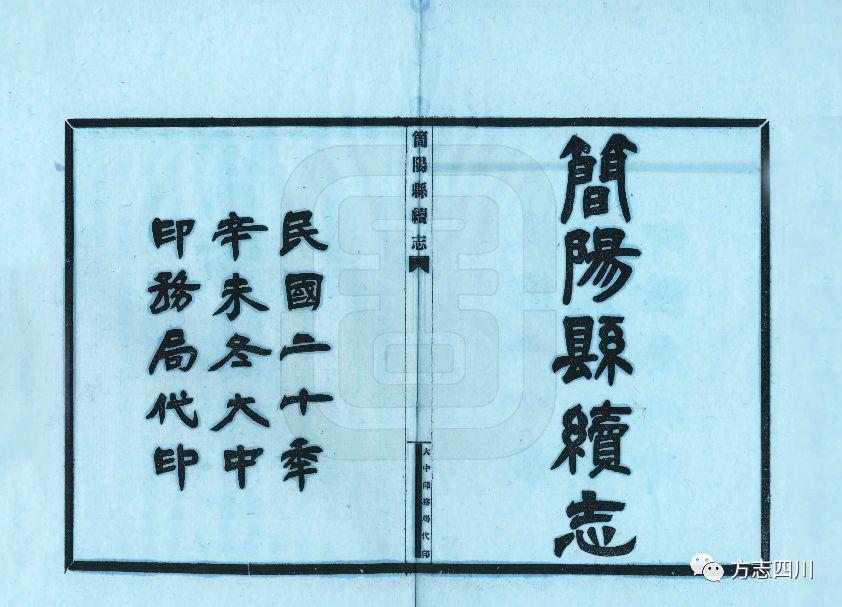 簡陽縣續志
簡陽縣續志
大中印務局代印
民國二十季
辛未冬大中
印務局代印
方志四川